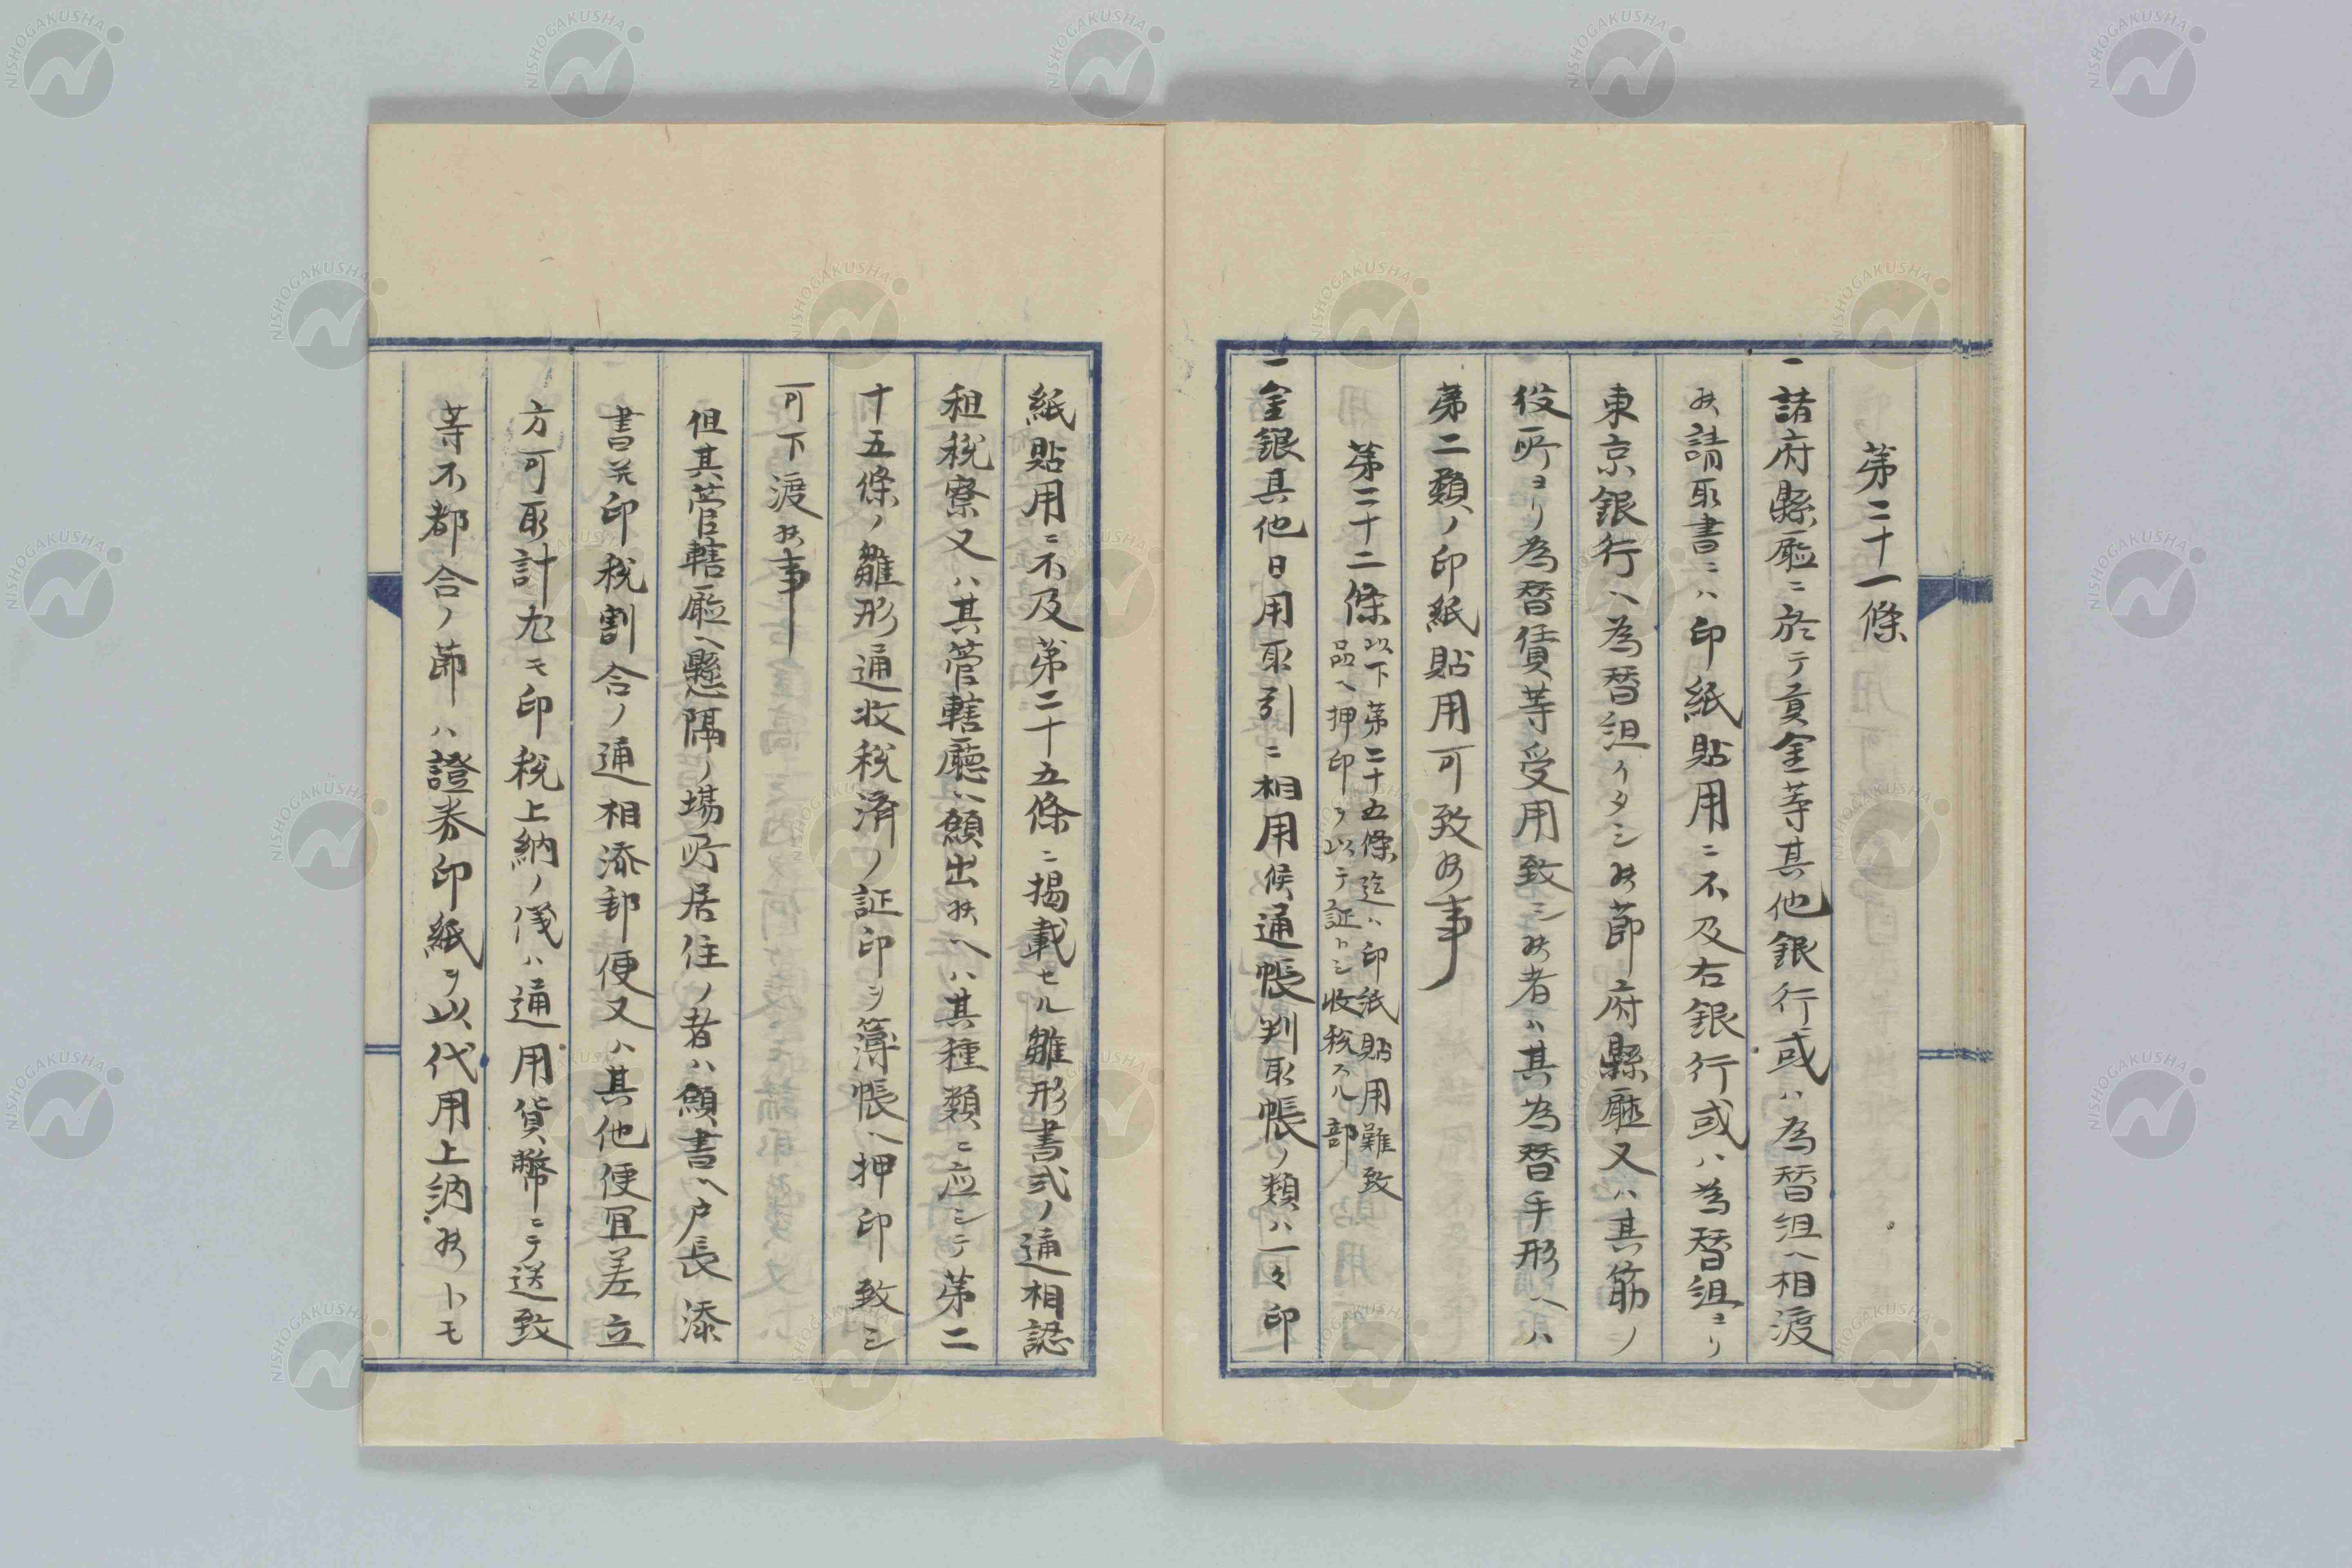 第二十一條
一諸府縣廳ニ於テ貢金等其他銀行或ハ為替組ヘ相渡
候請取書ニハ印紙貼用ニ不及右銀行或ハ為替組ヨリ
東京銀行ヘ為替組イタシ候節府縣廳又ハ其筋ノ
役所ヨリ為替賃等受用致シ候者ハ其為替手形ヘハ
第二類ノ印紙貼用可致候事
第二十二條
以下第二十五條迄ハ印紙貼用難致
品ヘ押印ヲ以テ証トシ收税スル部
一金銀其他日用取引ニ相用候通帳判取帳ノ類ハ一々印
紙貼用ニ不及第二十五條ニ掲載セル雛形書式ノ通相認
租税寮又ハ其管轄廳ヘ願出候ヘハ其種類ニ應シテ第二
十五條ノ雛形通收税済ノ証印ヲ簿帳ヘ押印致シ
可下渡候事
但其管轄廳ヘ懸隔ノ場所居住ノ者ハ願書ヘ戸長添
書並印税割合ノ通相添郵便又ハ其他便宜差立
方可取計尤モ印税上納ノ儀ハ通用貨幣ニテ送致
等不都合ノ節ハ證券印紙ヲ以代用上納候トモ
NISHOGAKUSHA